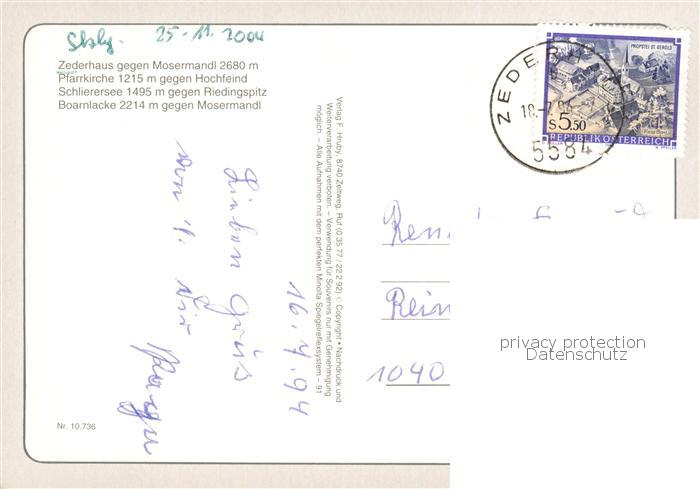 Sbg. 25-11.2004
Zederhaus gegen Mosermandl 2680 m
Pfarrkirche 1215 m gegen Hochfeind
Schlierersee 1495 m gegen Riedingspitz
Boarnlacke 2214 m gegen Mosermandl
Verlag F. Hruby, 8740 Zeltweg, Ruf (0 35 77 / 22 2 92) © Copyright • Nachdruck und
Weiterverarbeitung verboten. – Verwendung für Souvenirs nur mit Genehmigung
möglich. – Alle Aufnahmen mit dem perfekten Minolta Spiegelreflexsystem – 91
16.7.94
Lieben Gruß
von
ZEDER
18.-7.94
5584
PROPSTEI ST. GEROLD
S 5.50
REPUBLIK ÖSTERREICH
Ren
Rein
1040
privacy protection
Datenschutz
Nr. 10.736